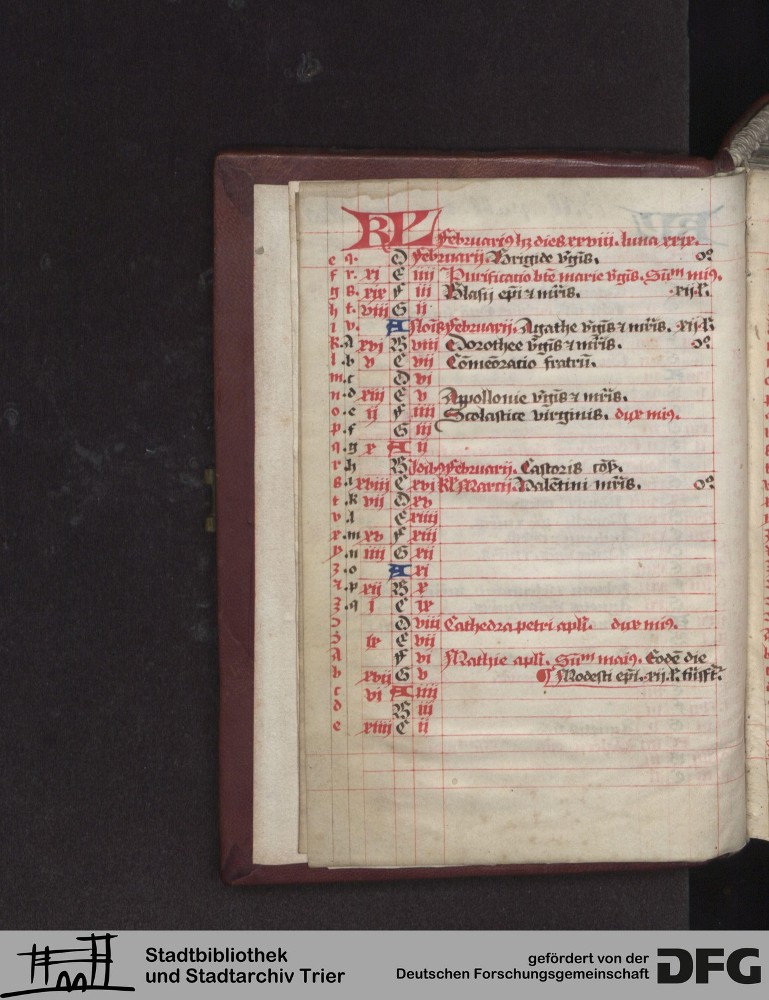 KL Februarius hꝫ dies xxviii. luna xxix.
e q. D Februarij. Brigide v̄gīs. Oꝰ
f r. xi E iiii Purificatio bt̄e marie v̄gīs. Sūm miꝰ.
g s. xix F iii Blasij ep̄i ⁊ mr̄is. xij.l.
h t. viii G ii
i v. A Noīs februarij. Agathe v̄gīs ⁊ mr̄is. xij.l
k. a xvi B viii Dorothee v̄gīs ⁊ mr̄is. Oꝰ
l .b v C vii Cōmēoratio fratrū.
m. c D vi
n .d xiii E v Appollonie v̄gīs ⁊ mr̄is.
o .e ii F iiii Scolastice virginis. dux miꝰ.
p .f G iii
q .g x A ii
r h B Idibꝰ februarij. Castoris
s .i xviii C xvi kl Martij. Valētini mr̄is. Oꝰ
t .k vii D xv
v .l E xiiii
x .m xv F xiii
y .n iiii G xii
z .o A xi
.p xii B x
.q i C ix
D viii Cathedra petri apl̄i. dux miꝰ.
ix E vii
A F vi Mathie apl̄i. Sūm maiꝰ. Eodē die
b xvii G v ¶ Modesti ep̄i. xij.l.
c vi A iiii
d B iii
e xiiii C ii
Stadtbibliothek
und Stadtarchiv Trier
gefördert von der
Deutschen Forschungsgemeinschaft
DFG